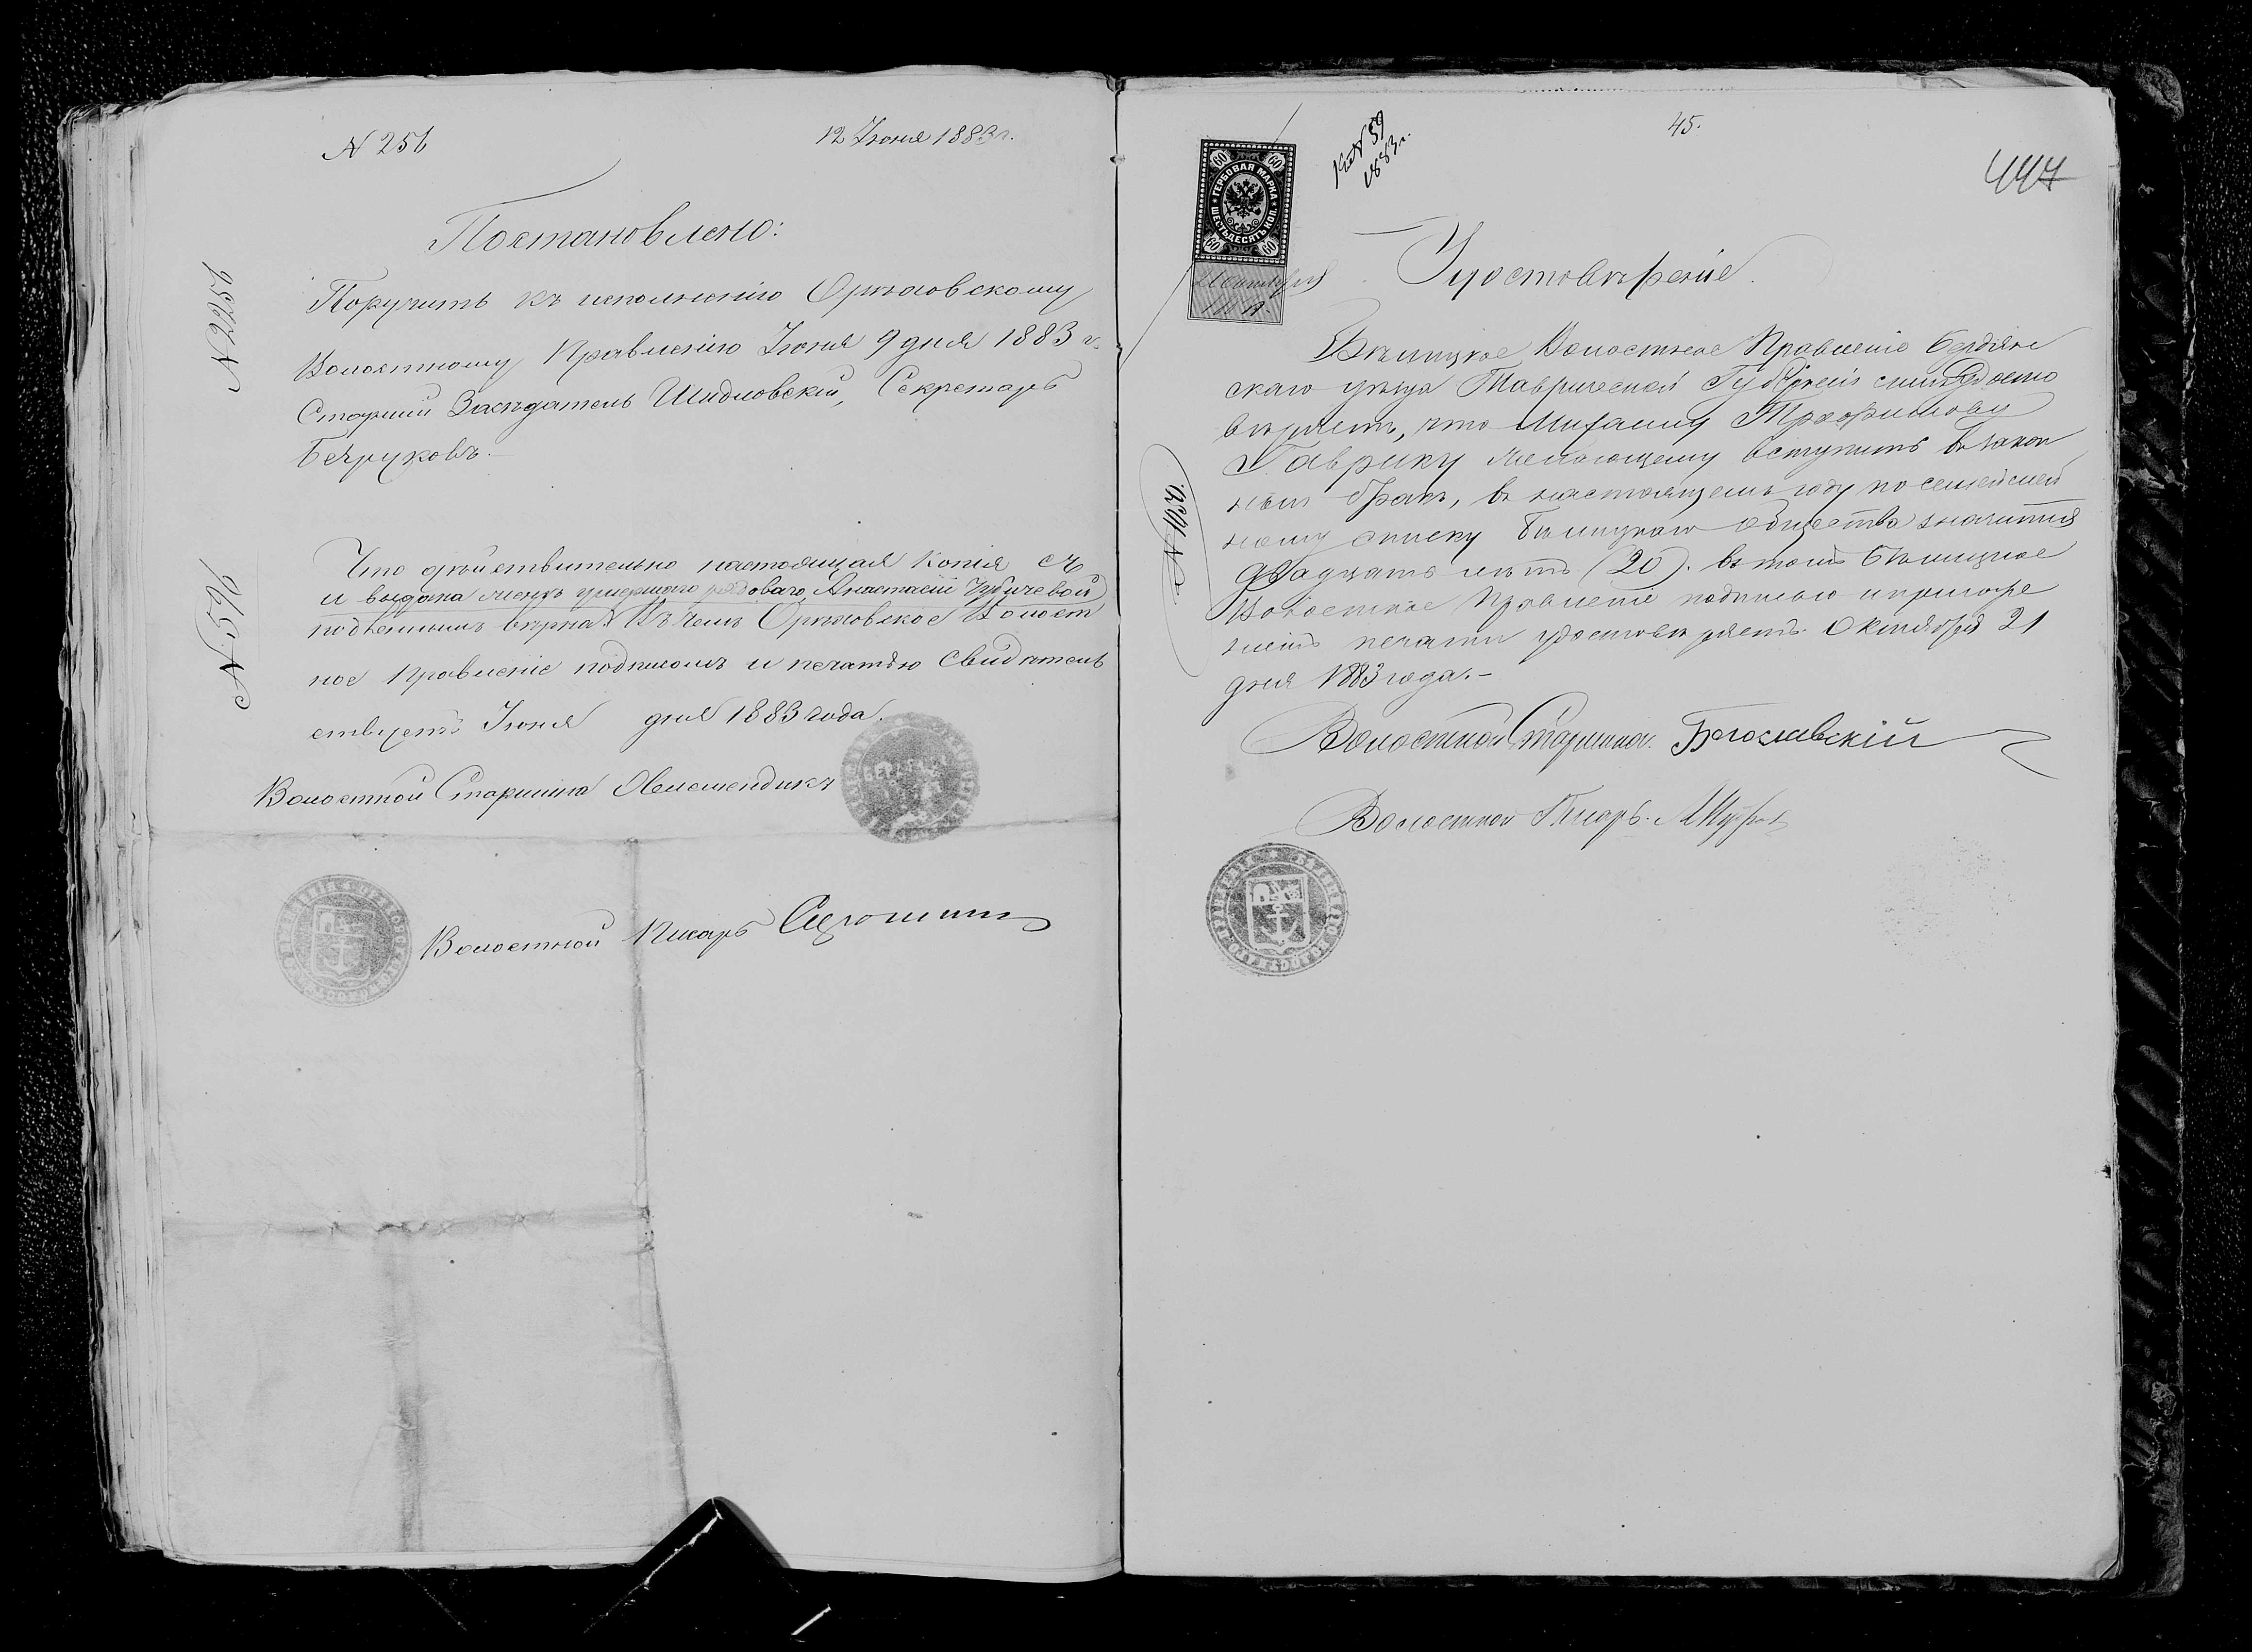 N 256
12 Іюня 1883 г.
Постановлено:
N 2256
Поручить къ исполненію Орѣховскому
Волостному Правленію Іюня 9 дня 1883 г.
Старшій Засѣдатель Шидловскій, Секретарь
Безруковъ.
N 596
Что дѣйствительно настоящая копія съ
и выдана женѣ умершаго рядоваго Анастасіи Чубичевой
подлиннымъ вѣрна въ чемъ Орѣховское Волост
ное Правленіе подписомъ и печатью свидѣтель
ствуетъ Іюня дня 1883 года.
Волостной Старшина
Волостной Писарь
45.
447
N 59
1883 г.
ГЕРБОВАЯ МАРКА
ШЕСТЬДЕСЯТЪ КОП.
60 60 60 60
21 Октября
1883 г.
Удостовѣреніе.
N 1730
Бѣлицкое Волостное Правленіе Бердян
скаго уѣзда Таврической Губерніи симъ удосто
вѣряетъ, что Михаилу Трофимову
Гаврику желающему вступить въ закон
ный бракъ, въ настоящемъ году по семей
ному списку Бѣлицкаго общества значится
двадцать лѣтъ (20). въ томъ Бѣлицкое
Волостное Правленіе подписью и приложе
ніемъ печати удостовѣряетъ Октября 21
дня 1883 года.-
Волостной Старшина Богославскій
Волостной Писарь